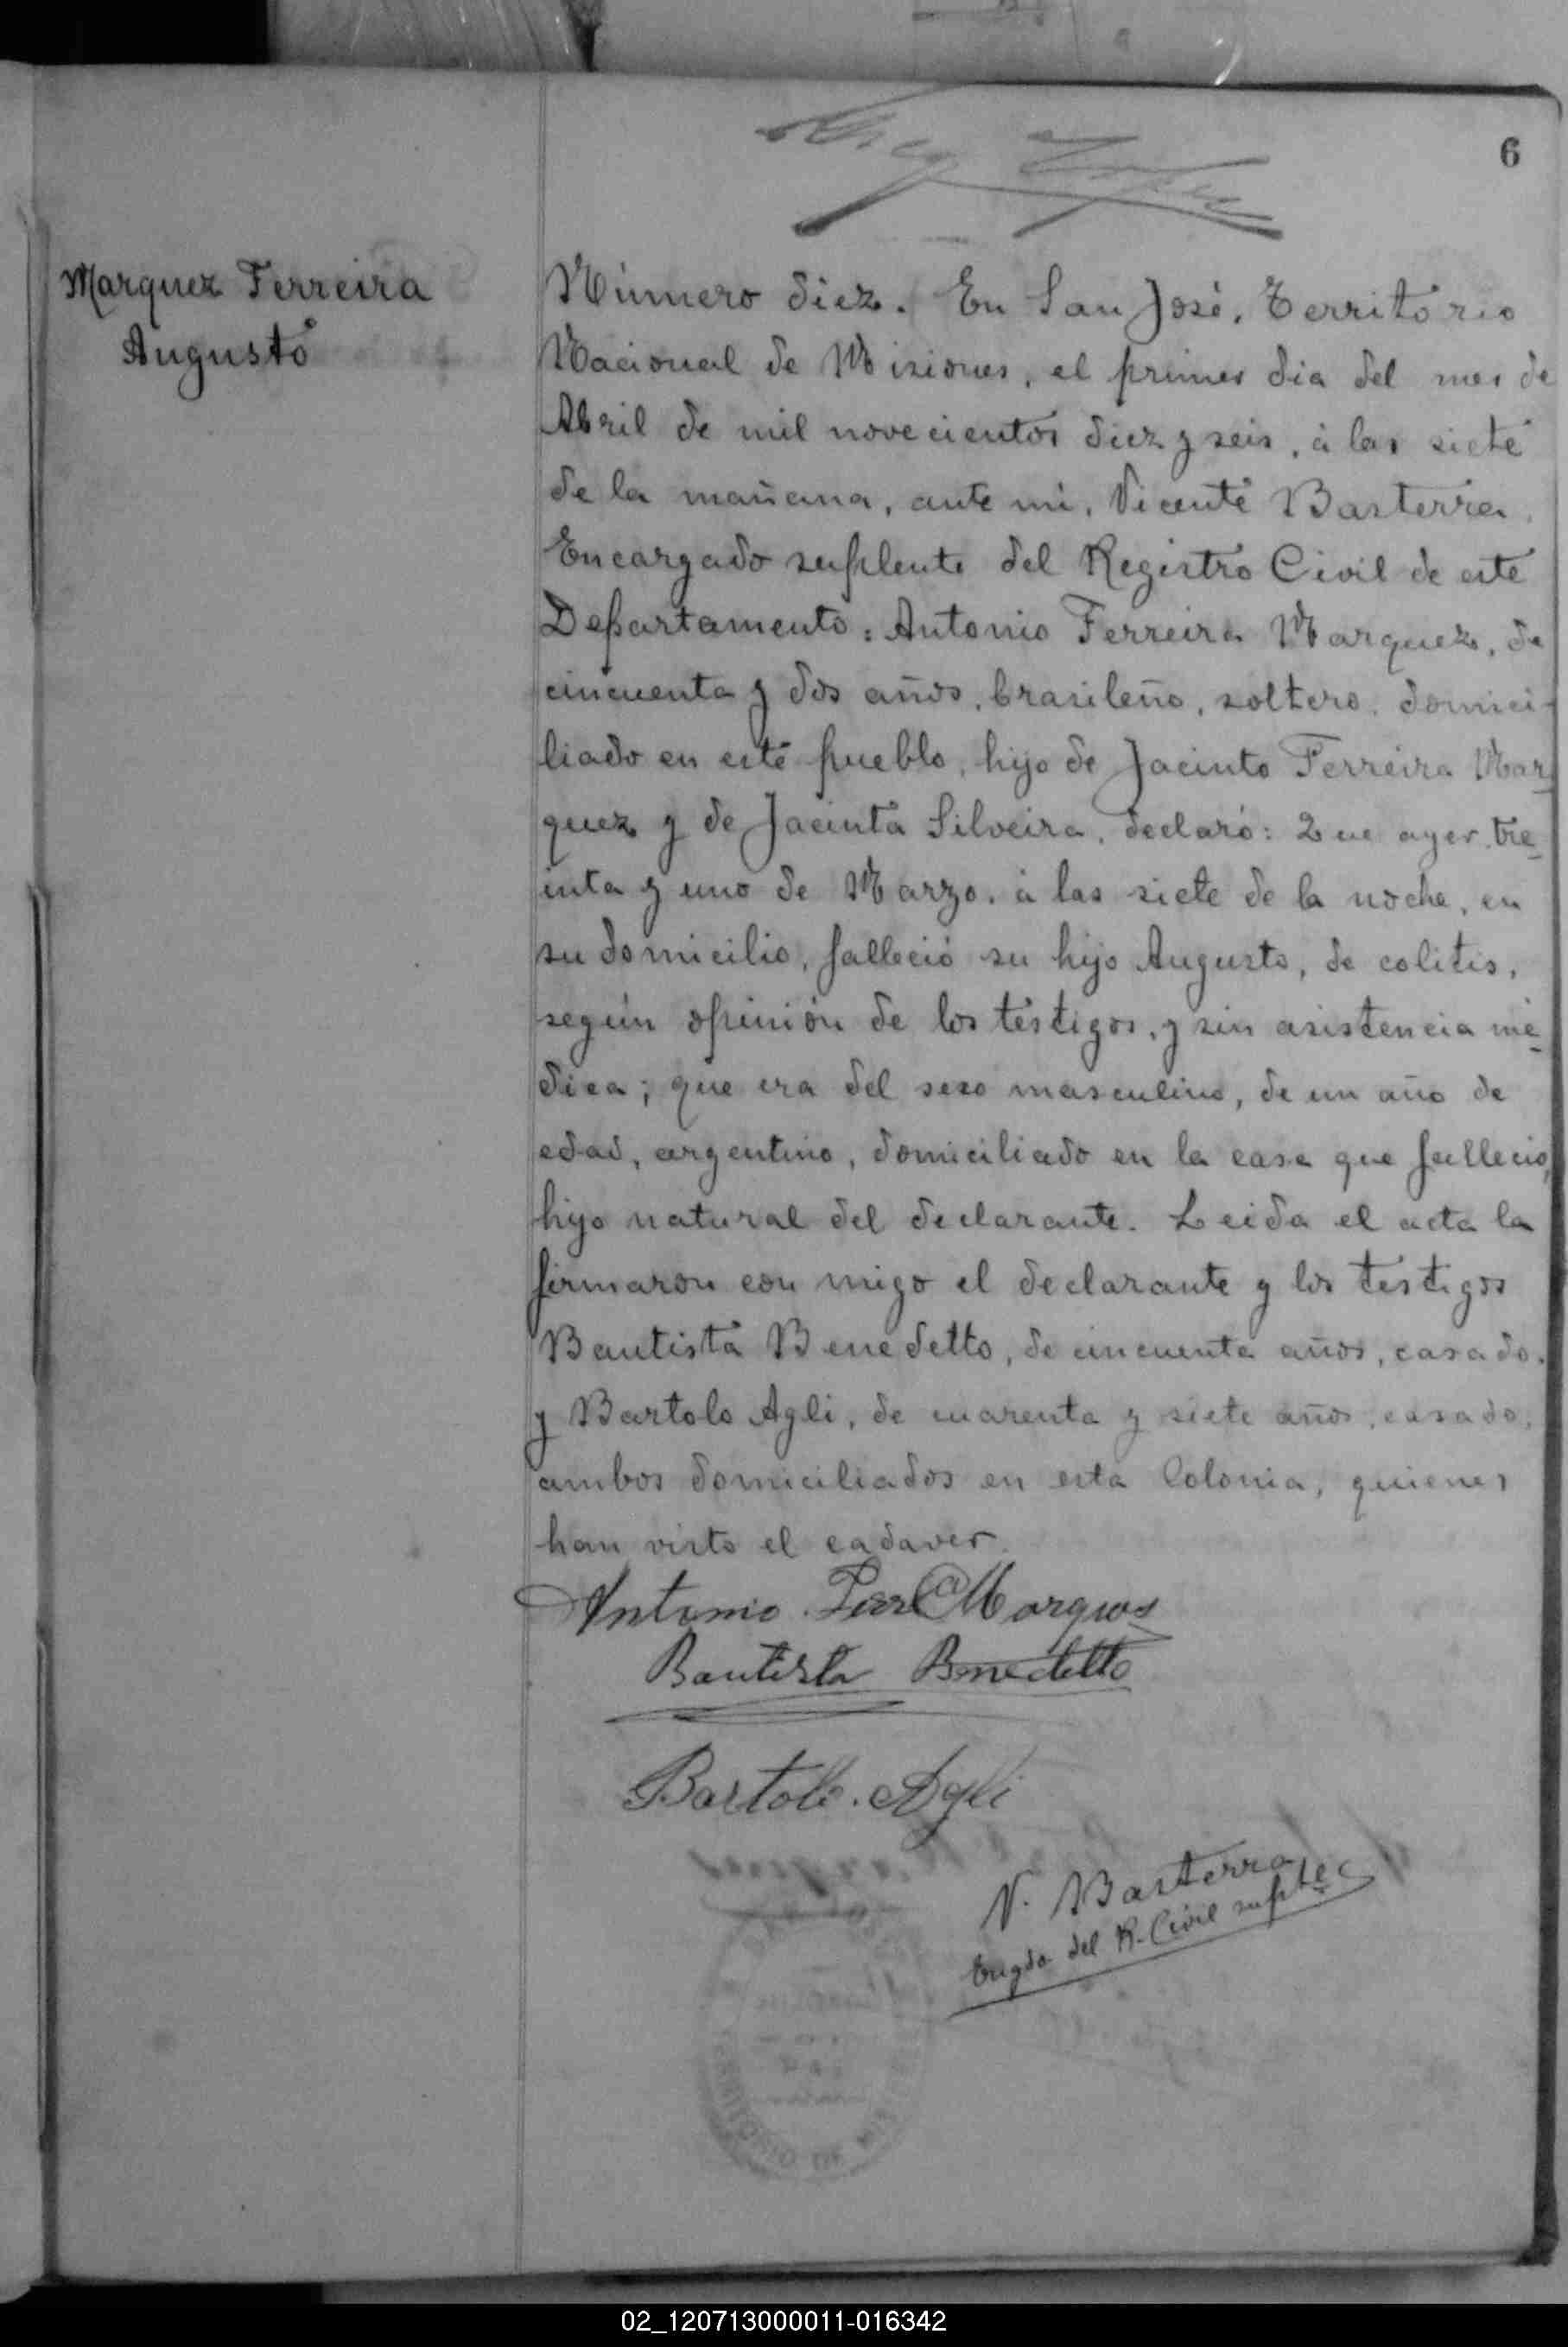 6
Marquez Ferreira
Augusto
Número diez. En San José, Territorio
Nacional de Misiones, el primer dia del mes de
Abril de mil novecientos diez y seis, à las siete
de la mañana, ante mi, Vicente Basterra,
Encargado suplente del Registro Civil de este
Departamento: Antonio Ferreira Marquez, de
cincuenta y dos años, brasileño, soltero, domici-
liado en este pueblo, hijo de Jacinto Ferreira Mar-
quez y de Jacinta Silveira, declaró: Que ayer, tre-
inta y uno de Marzo, à las siete de la noche, en
su domicilio, falleció su hijo Augusto, de colitis,
según opinión de los testigos, y sin asistencia mé-
dica; que era del sexo masculino, de un año de
edad, argentino, domiciliado en la casa que falleció,
hijo natural del declarante. Leida el acta la
firmaron con migo el declarante y los testigos
Bautista Benedetto, de cincuenta años, casado,
y Bartolo Agli, de cuarenta y siete años, casado,
ambos domiciliados en esta Colonia, quienes
han visto el cadaver.
Antonio Ferrª Marques
Bautista Benedetto
Bartolo. Agli
V. Basterra
Engdo del R. Civil suplte
02_120713000011-016342